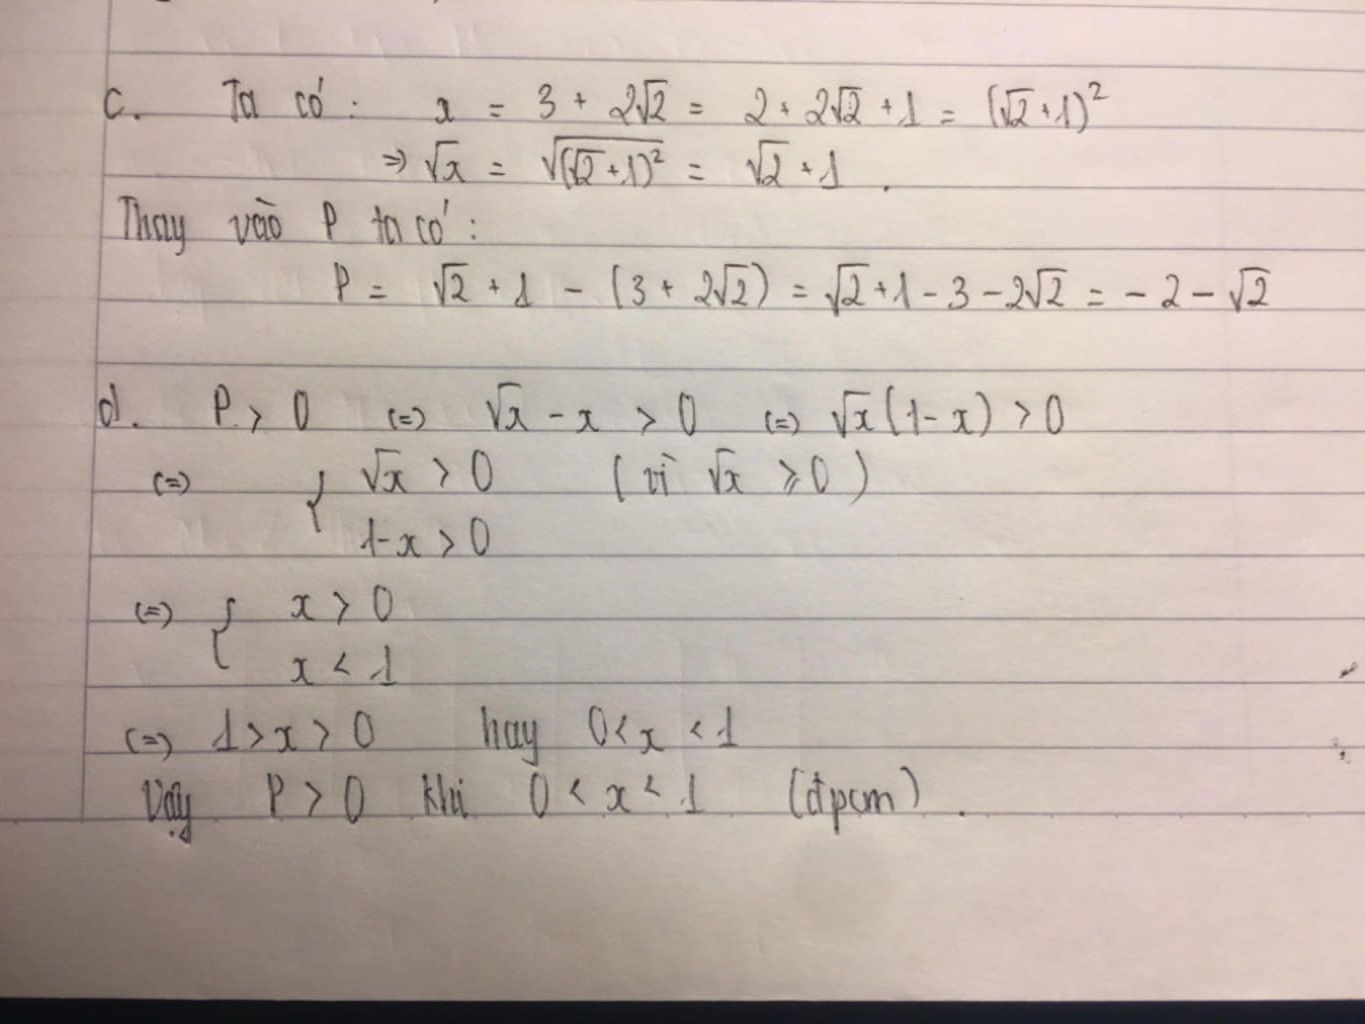 c. Ta có: x = 3 + 2√2 = 2 + 2√2 + 1 = (√2 + 1)²
=> √x = √(√2 + 1)² = √2 + 1.
Thay vào P ta có:
P = √2 + 1 - (3 + 2√2) = √2 + 1 - 3 - 2√2 = - 2 - √2
d. P > 0 (=) √x - x > 0 (=) √x (1 - x) > 0
(=) { √x > 0 (vì √x ⩾ 0)
1 - x > 0
(=) { x > 0
x < 1
(=) 1 > x > 0 hay 0 < x < 1
Vậy P > 0 khi 0 < x < 1 (đpcm).